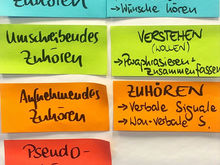 Zuhören
→ Wünsche hören
Umschreibendes
Zuhören
VERSTEHEN
(WOLLEN)
→ Paraphrasieren +
Zusammenfassen
Aufnehmendes
Zuhören
ZUHÖREN
→ Verbale Signale
→ Non-verbale S.
Pseudo-